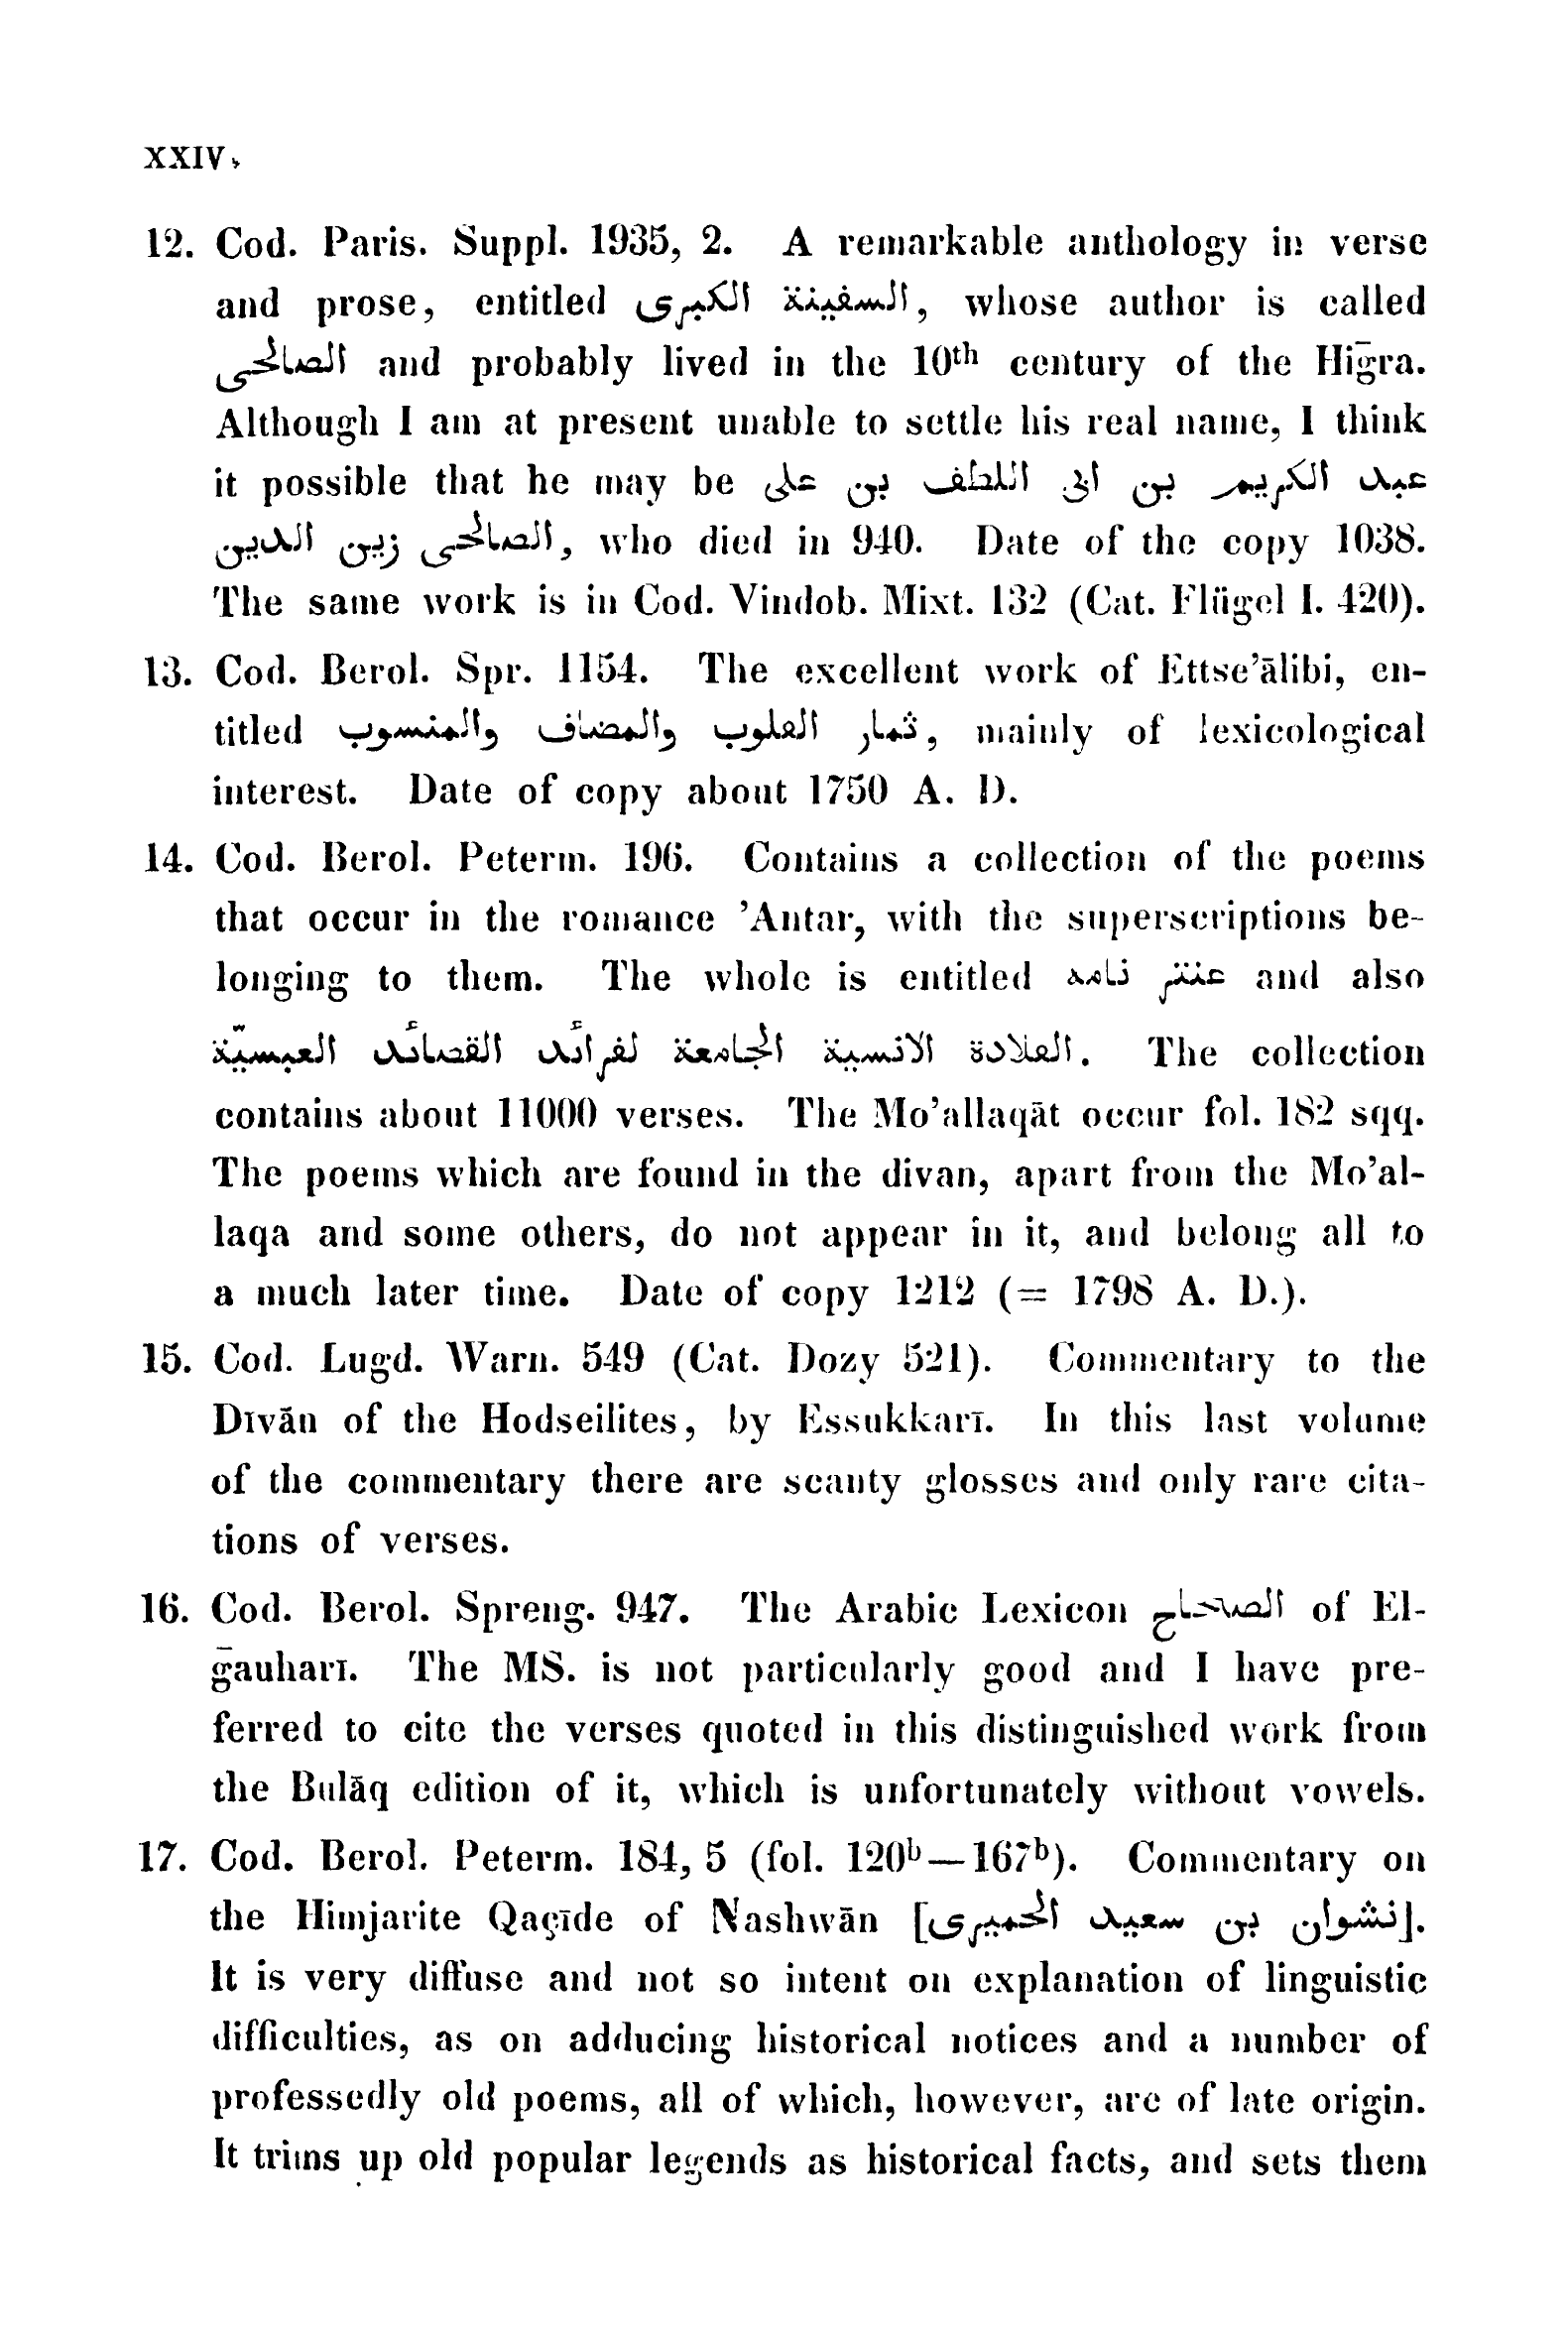 XXIV
12. Cod. Paris. Suppl. 1935, 2. A remarkable anthology in verse
and prose, entitled السفينة الكبرى, whose author is called
الصالحى and probably lived in the 10th century of the Hiḡra.
Although I am at present unable to settle his real name, I think
it possible that he may be عبد الكريم بن ابى اللطف بن على
الصالحى زين الدين, who died in 940. Date of the copy 1038.
The same work is in Cod. Vindob. Mixt. 132 (Cat. Flügel I. 420).
13. Cod. Berol. Spr. 1154. The excellent work of Ettse’ālibi, en-
titled ثمار القلوب والمضاف والمنسوب, mainly of lexicological
interest. Date of copy about 1750 A. D.
14. Cod. Berol. Peterm. 196. Contains a collection of the poems
that occur in the romance ’Antar, with the superscriptions be-
longing to them. The whole is entitled عنتر نامه and also
القلادة الانسية الجامعة لفرائد القصائد العبسيّة. The collection
contains about 11000 verses. The Mo’allaqāt occur fol. 182 sqq.
The poems which are found in the divan, apart from the Mo’al-
laqa and some others, do not appear in it, and belong all to
a much later time. Date of copy 1212 (= 1798 A. D.).
15. Cod. Lugd. Warn. 549 (Cat. Dozy 521). Commentary to the
Dīvān of the Hodseilites, by Essukkarī. In this last volume
of the commentary there are scanty glosses and only rare cita-
tions of verses.
16. Cod. Berol. Spreng. 947. The Arabic Lexicon الصحاح of El-
ḡauharī. The MS. is not particularly good and I have pre-
ferred to cite the verses quoted in this distinguished work from
the Bulāq edition of it, which is unfortunately without vowels.
17. Cod. Berol. Peterm. 184, 5 (fol. 120b—167b). Commentary on
the Himjarite Qaçīde of Nashwān [نشوان بن سعيد الحميرى].
It is very diffuse and not so intent on explanation of linguistic
difficulties, as on adducing historical notices and a number of
professedly old poems, all of which, however, are of late origin.
It trims up old popular legends as historical facts, and sets them